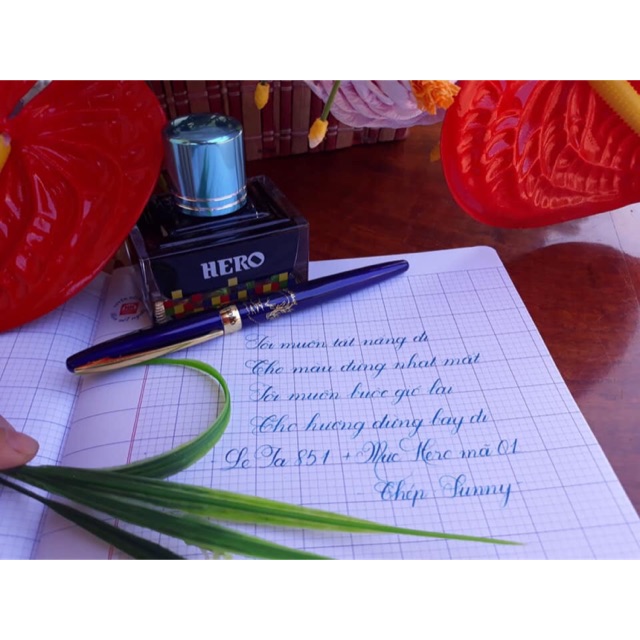 HERO
Tôi muốn tắt nắng đi
Cho màu đừng nhạt mất
Tôi muốn buộc gió lại
Cho hương đừng bay đi
Lê Ta 851 + Mực Hero mã 01
Chép Sunny